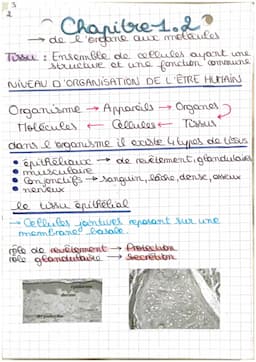 Chapitre 1.2
→ de l'organe aux molécules
Tissu : Ensemble de cellules ayant une
structure et une fonction commune
NIVEAU D'ORGANISATION DE L'ÊTRE HUMAIN
Organisme → Appareils → Organes
Molécules ← Cellules ← Tissus
dans l'organisme il existe 4 types de tissus
• épithéliaux → de revêtement, glandulaires
• musculaire
• Conjonctifs → sanguin, lâche, dense, osseux
• nerveux
le tissu épithélial
→ Cellules jointives reposant sur une
membrane basale.
rôle de revêtement → Protection
rôle glandulaire → Secrétion